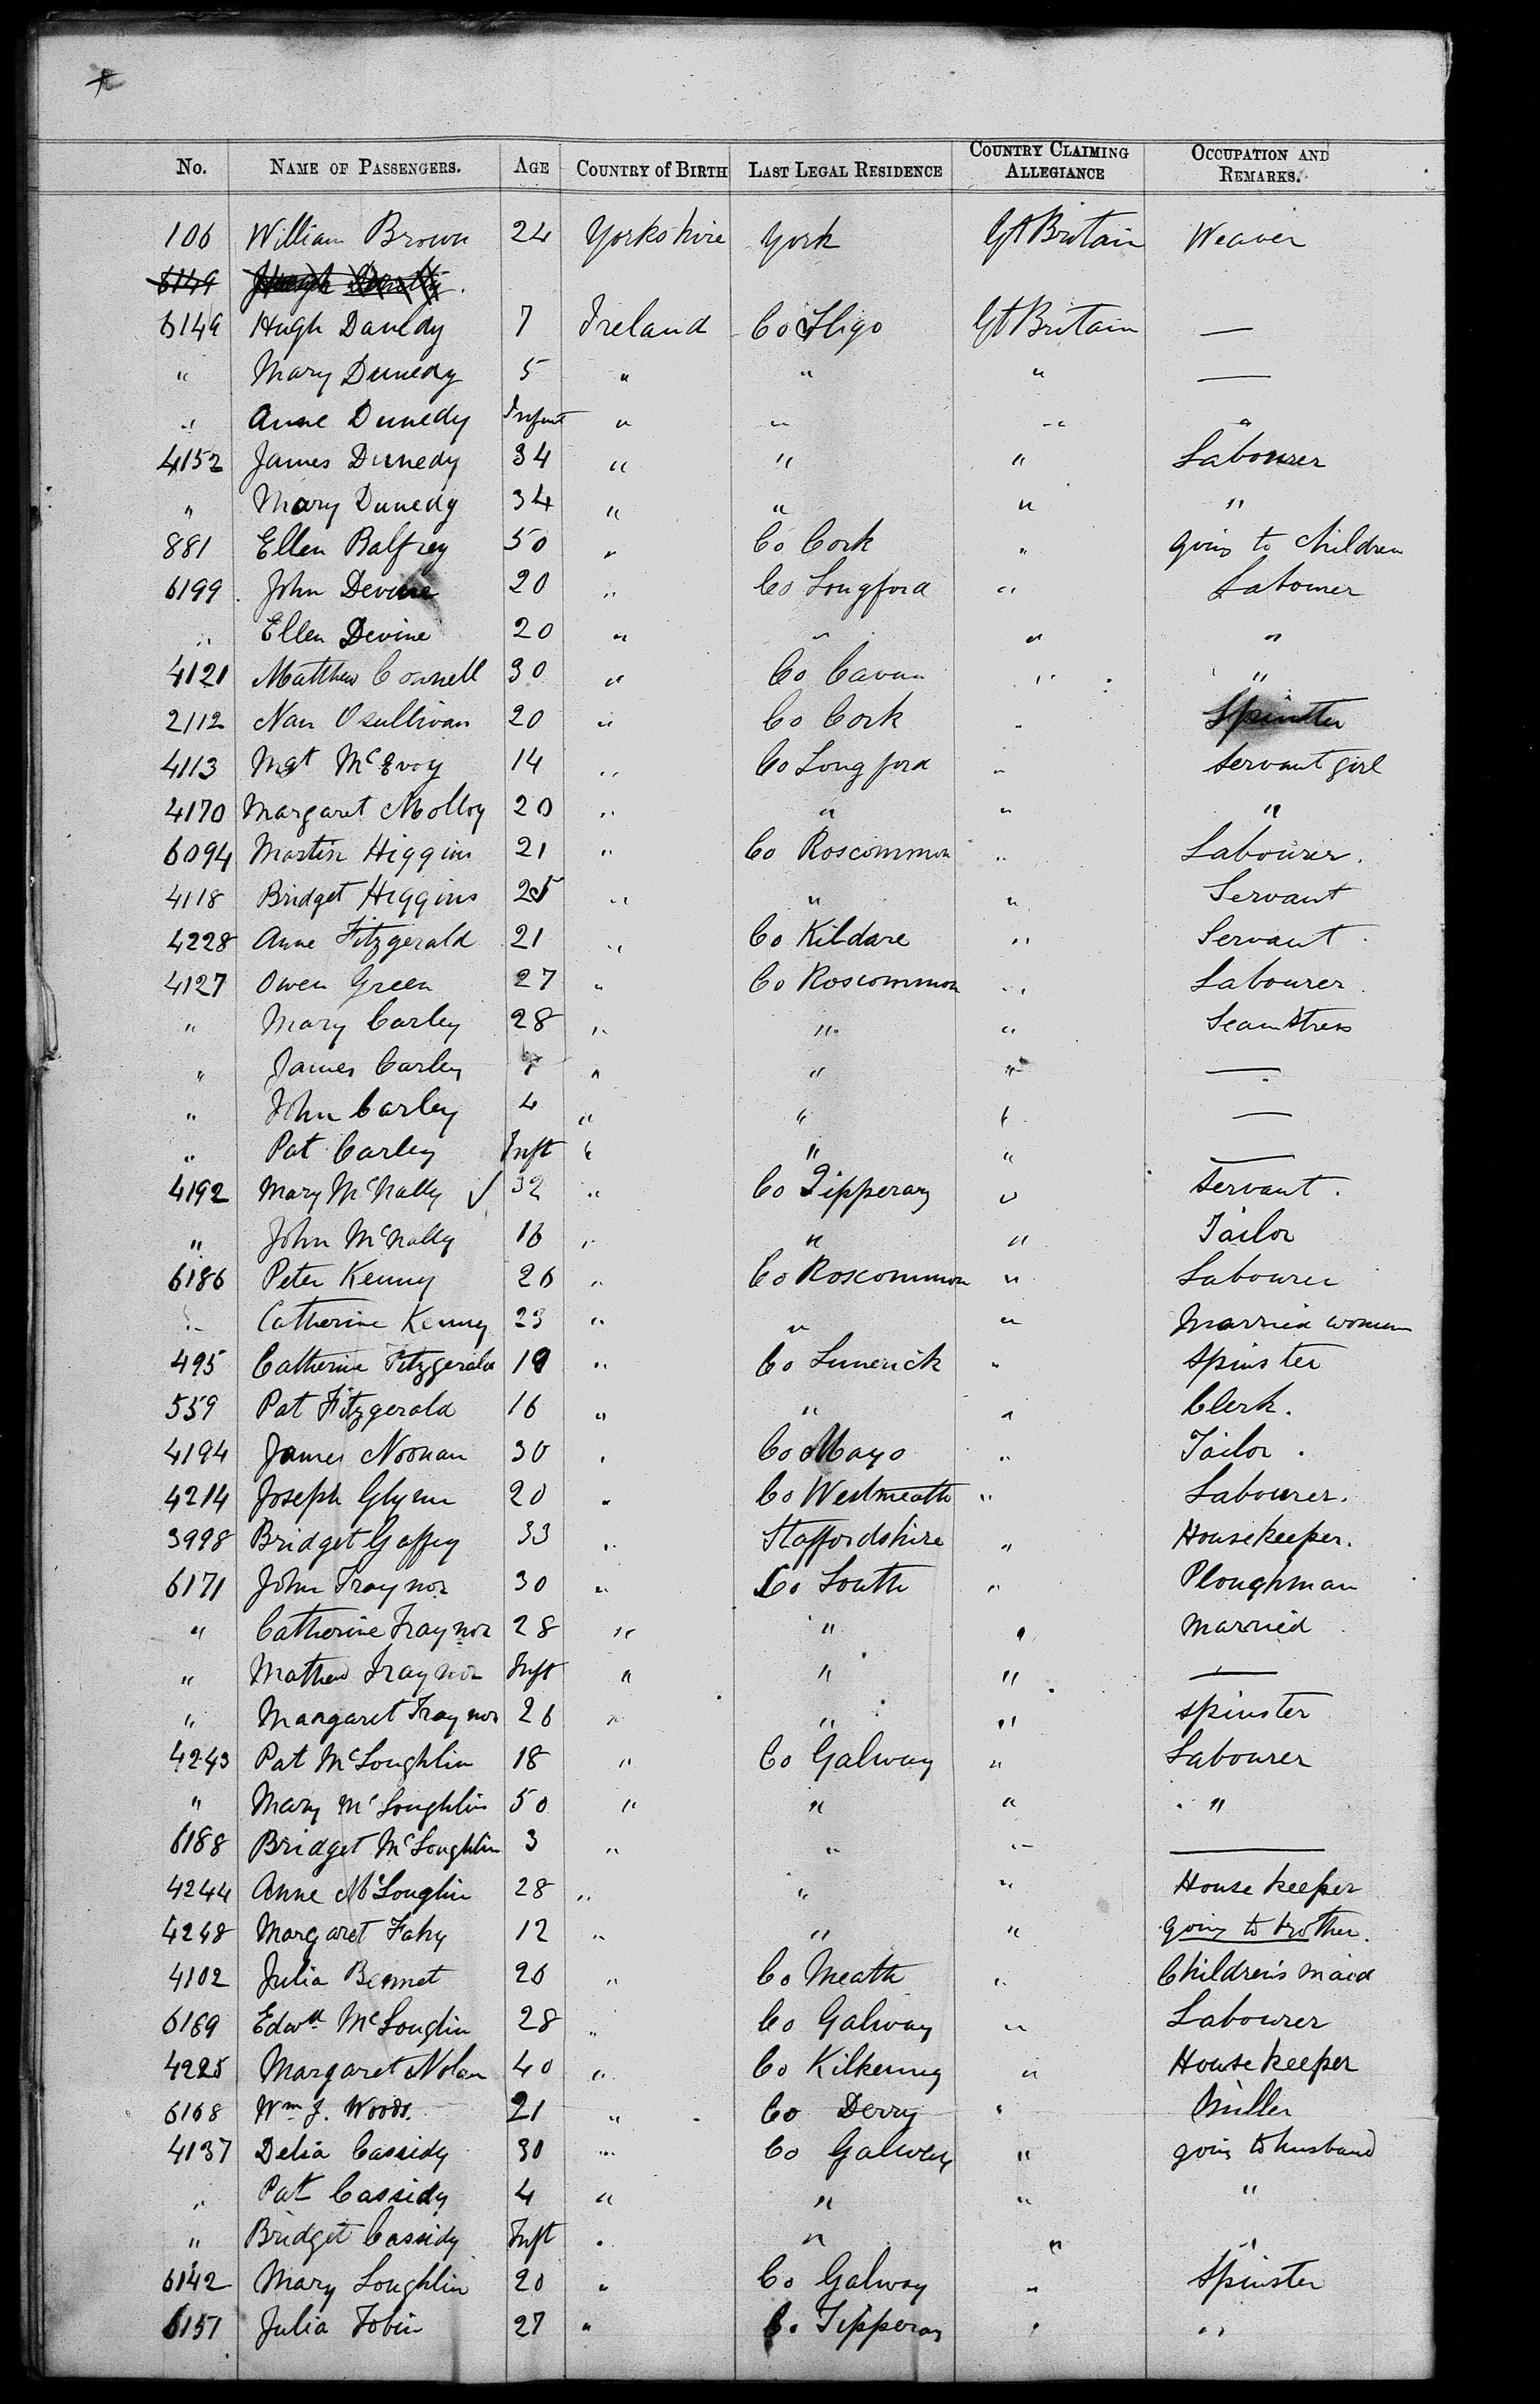 No. NAME OF PASSENGERS. AGE COUNTRY of BIRTH LAST LEGAL RESIDENCE COUNTRY CLAIMING ALLEGIANCE OCCUPATION AND REMARKS.
106 William Brown 24 Yorkshire York Gt Britain Weaver
6149
6149 Hugh Dunedy 7 Ireland Co Sligo Gt Britain —
" Mary Dunedy 5 " " " —
" Anne Dunedy Infant " " " "
4152 James Dunedy 34 " " " Labourer
" Mary Dunedy 34 " " " "
881 Ellen Balfrey 50 " Co Cork " going to children
6199 John Devine 20 " Co Longford " Labourer
" Ellen Devine 20 " " " "
4121 Matthew Connell 30 " Co Cavan " "
2112 Nan Osullivan 20 " Co Cork " Spinster
4113 Mgt McEvoy 14 " Co Longford " servant girl
4170 Margaret Molloy 20 " " " "
6094 Martin Higgins 21 " Co Roscommon " Labourer.
4118 Bridget Higgins 25 " " " Servant
4228 Anne Fitzgerald 21 " Co Kildare " Servant
4127 Owen Green 27 " Co Roscommon " Labourer
" Mary Carley 28 " " " Seamstress
" James Carley 7 " " " —
" John Carley 4 " " " —
" Pat Carley Inft " " " —
4192 Mary McNally ✓ 32 " Co Tipperary " Servant.
" John McNally 16 " " " Tailor
6186 Peter Kenny 26 " Co Roscommon " Labourer
" Catherine Kenny 23 " " " Married woman
495 Catherine Fitzgerald 19 " Co Limerick " Spinster
559 Pat Fitzgerald 16 " " " Clerk.
4194 James Noonan 30 " Co Mayo " Tailor.
4214 Joseph Glynn 20 " Co Westmeath " Labourer.
3998 Bridget Gaffey 33 " Staffordshire " Housekeeper.
6171 John Traynor 30 " Co Louth " Ploughman
" Catherine Traynor 28 " " " Married
" Mathew Traynor Inft " " " —
" Margaret Traynor 26 " " " spinster
4243 Pat McLoughlin 18 " Co Galway " Labourer
" Mary McLoughlin 50 " " " "
6188 Bridget McLoughlin 3 " " " —
4244 Anne McLouglin 28 " " " House keeper
4248 Margaret Fahy 12 " " " going to brother.
4102 Julia Bennet 26 " Co Meath " Children's maid
6189 Edwd McLouglin 28 " Co Galway " Labourer
4225 Margaret Nolan 40 " Co Kilkenny " House keeper
6168 Wm J. Woods. 21 " Co Derry " Miller
4137 Delia Cassidy 30 " Co Galway " going to husband
" Pat Cassidy 4 " " " "
" Bridget Cassidy Inft " " " "
6142 Mary Loughlin 20 " Co Galway " Spinster
6151 Julia Tobin 27 " Co Tipperary " "